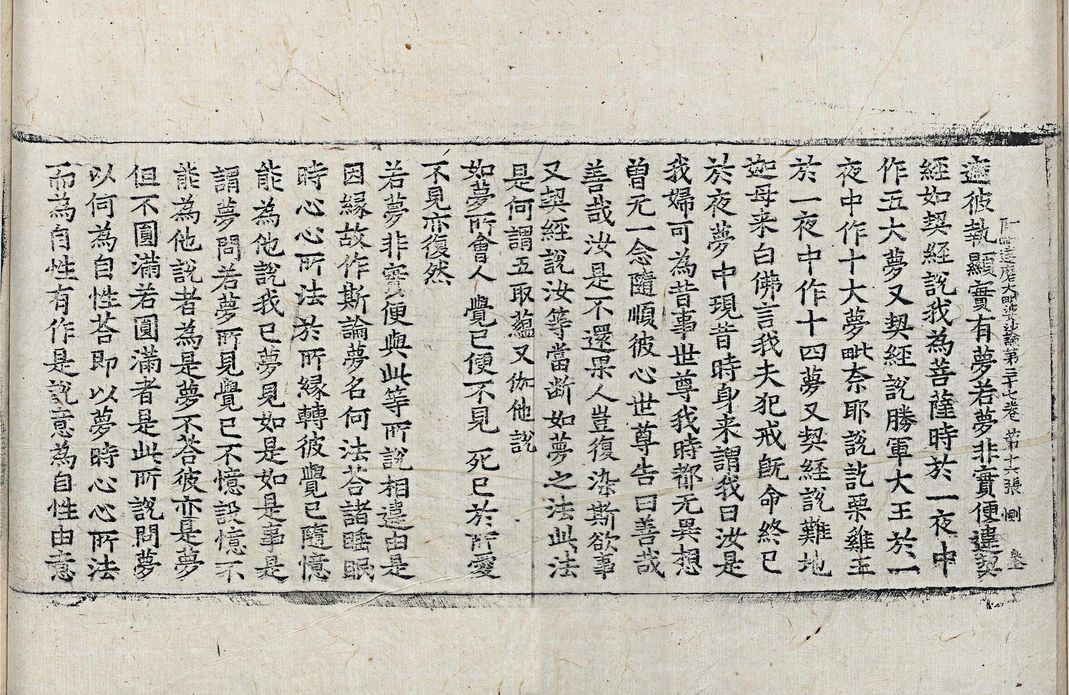 阿毗達磨大毗婆沙論第三十七卷 第十六張 惻
遮彼執顯實有夢若夢非實便違契
經如契經說我為菩薩時於一夜中
作五大夢又契經說勝軍大王於一
夜中作十大夢毗奈耶說訖栗雞王
於一夜中作十四夢又契經說難地
迦母来白佛言我夫犯戒旣命終已
於夜夢中現昔時身来謂我曰汝是
我婦可為昔事世尊我時都无異想
曾无一念隨順彼心世尊告曰善哉
善哉汝是不還果人豈復染斯欲事
又契經說汝等當断如夢之法此法
是何謂五取蘊又伽他說
如夢所會人覺已便不見 死已於所愛
不見亦復然
若夢非實便與此等所說相違由是
因緣故作斯論夢名何法荅諸睡眠
時心心所法於所緣轉彼覺已隨憶
能為他說我已夢見如是如是事是
謂夢問若夢所見覺已不憶設憶不
能為他說者為是夢不荅彼亦是夢
但不圓滿若圓滿者是此所說問夢
以何為自性荅即以夢時心心所法
而為自性有作是說意為自性由意